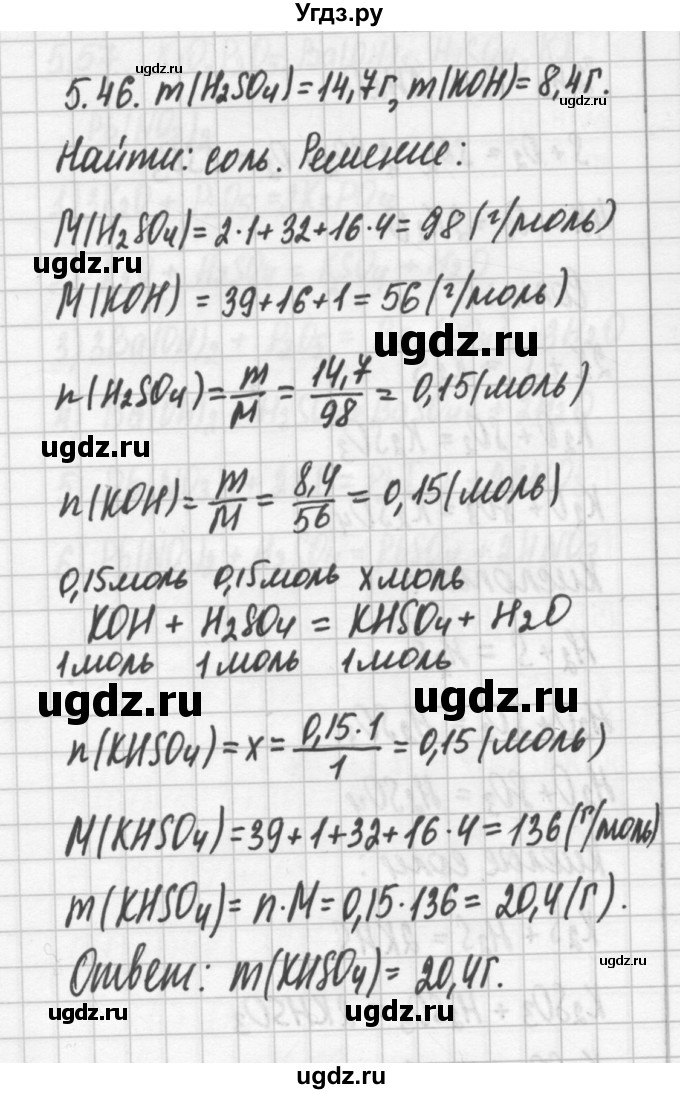 Угдз.ру
ugdz.ru
5.46. m(H₂SO₄)=14,7г, m(KOH)=8,4г.
ugdz.ru
Найти: соль. Решение:
M(H₂SO₄)=2·1+32+16·4=98(г/моль)
ugdz.ru
M(KOH)=39+16+1=56(г/моль)
ugdz.ru
n(H₂SO₄)=m/M=14,7/98=0,15(моль)
ugdz.ru
n(KOH)=m/M=8,4/56=0,15(моль)
0,15моль 0,15моль x моль
KOH + H₂SO₄ = KHSO₄ + H₂O
1моль 1моль 1моль
ugdz.ru ugdz.ru
n(KHSO₄)=x=0,15·1/1=0,15(моль)
M(KHSO₄)=39+1+32+16·4=136(г/моль)
m(KHSO₄)=n·M=0,15·136=20,4(г).
Ответ: m(KHSO₄)=20,4г.
ugdz.ru
ugdz.ru ugdz.ru
ugdz.ru